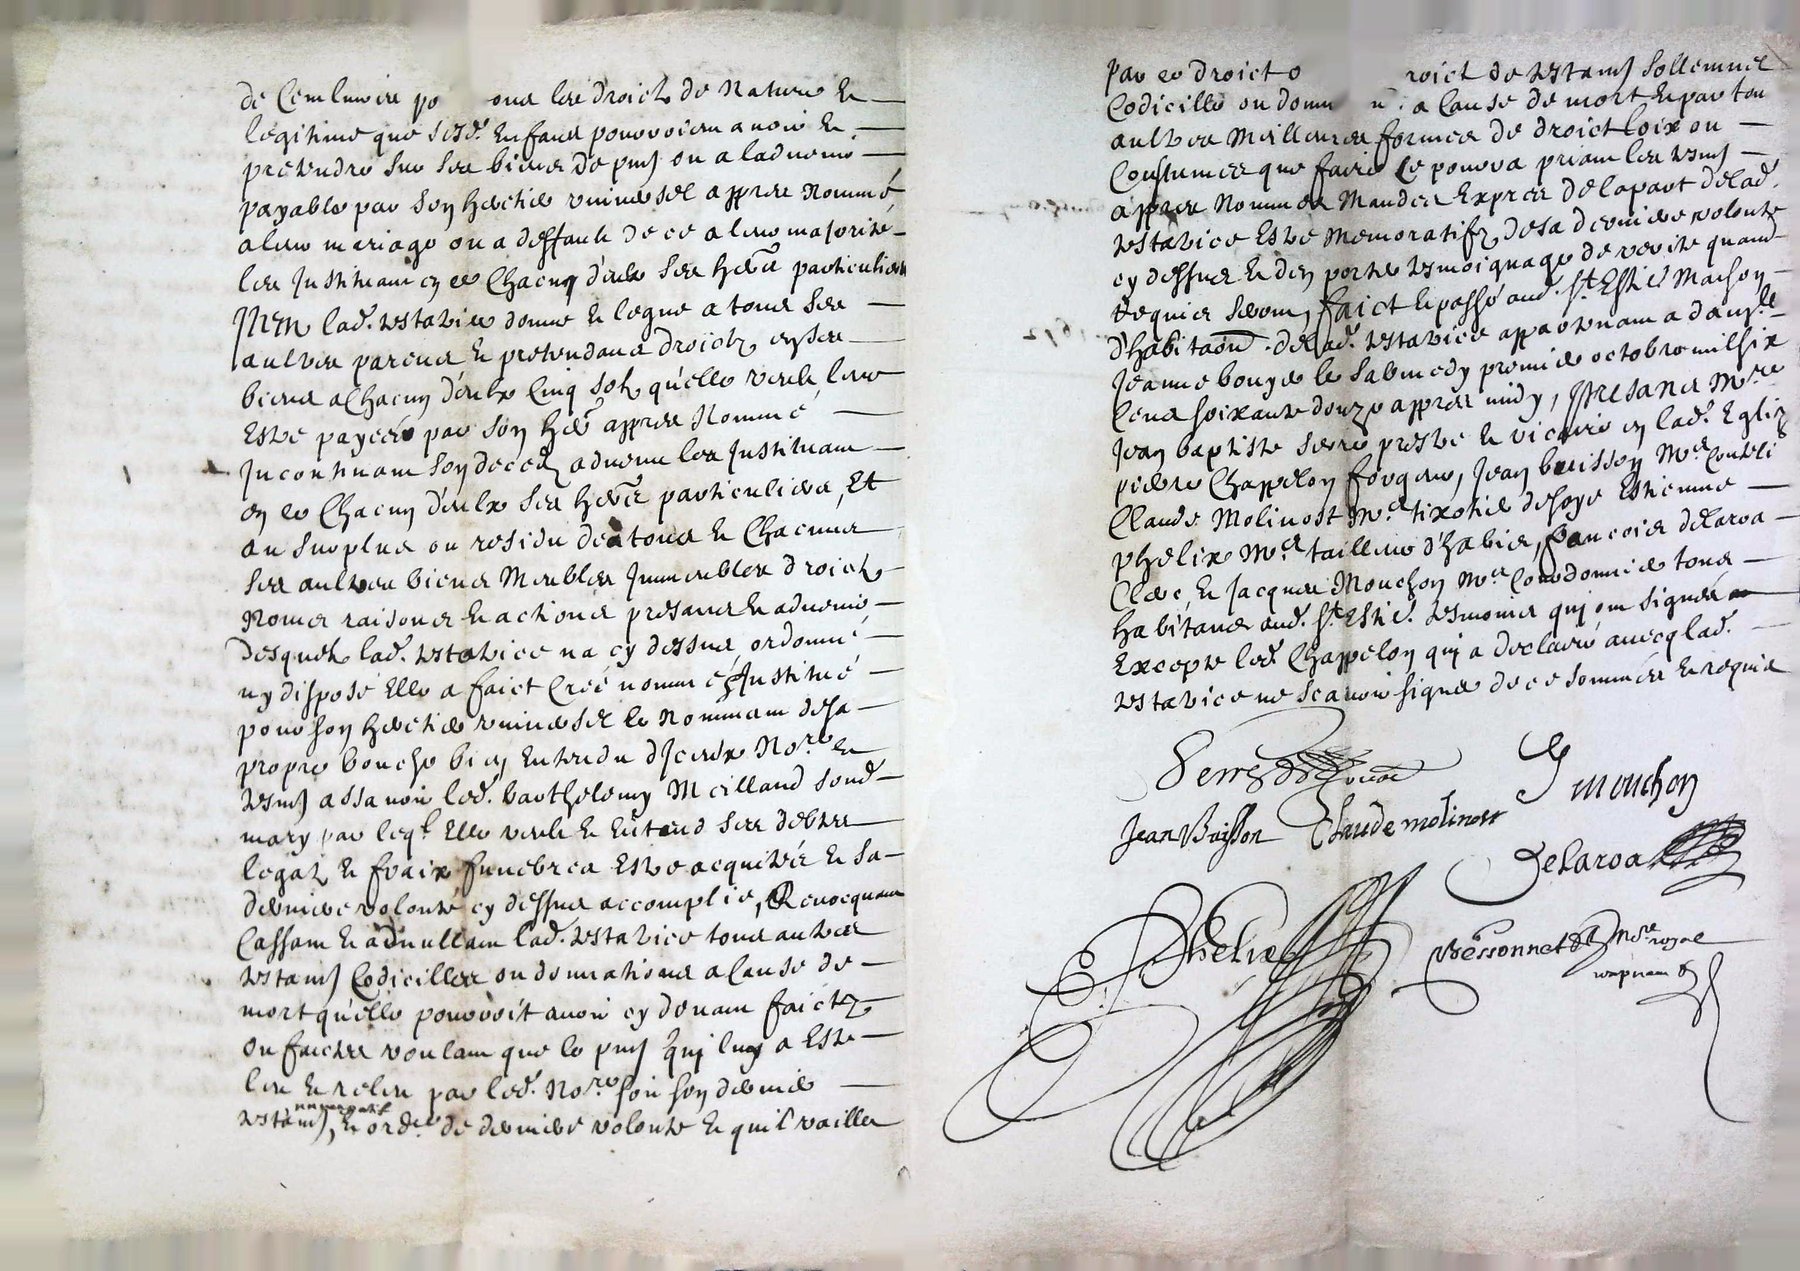 de Cemlunire po ous les droicts de nature Et
legitime que sesd. Enfans pouvoient avoir Et
pretendre sur ses biens de pnt ou a ladvenir
payable par son hertier universel appres Nommé
a leur mariage ou a deffault de ce a leur majorité
les Instituant en ce Chacun d'eulx ses hers particuliers
Item lad. testatrice donne Et legue a tous ses
aultres parens Et pretendans droictz en ses
biens a Chacun d'eulx Cinq solz qu'elle veult leur
Estre payées par son her appres Nommé
Incontinant son deced advenu les Instituant
en ce Chacun d'eulx ses hers particuliers, Et
au surplus ou residu de tous Et Chacuns
ses aultres biens Meubles Immeubles droicts
Noms raisons Et actions presans Et advenir
Desquels lad. testatrice na cy dessus ordonné
ny disposé Elle a faict Creé nommé Institué
pour son hertier universel le Nommant de sa
propre bouche bien Entendu d'Iceulx No.re et
tesmz assavoir led. barthelemy Meilland sond
mary par leql Elle veult Et Entend ses debtes
legatz Et fraix funebres Estre acquités Et sa
derniere volonté cy dessus accomplie, Revocquant
Cassant Et adnullant lad. testatrice tous autres
testamz Codicilles ou donnations a Cause de
mort qu'elle pourroit avoir cy devant faictz
ou faictes voulant que le pnt qui luy a Este
leu Et releu par led. No.re soit son dernier
testamz nuncupatif, Et ord.ce de derniere volonté Et qu'il vaille
par ce droict o roict de testamz sollemnel
Codicille ou donn n a Cause de mort Et par tou
aultres Meilleures formes de droict loix ou
Coustumes que faire se pourra priant les tesmz
appres Nommes Mandes Expres de la part de lad.
testatrice Estre Memoratifz de sa derniere volonté
cy dessus Et d'en porter tesmoignage de verité quand
requis seront, faict Et passé aud. St Estie Maison
d'habitaōn de lad. testatrice appartenant a dam.lle
Jeanne bouyer le sabmedy premier octobre mil six
Cens soixante douze appres midy, Presans M.re
Jean baptiste serre prestre Et vicaire en lad. Eglize
pierre Chappelon forgeur, Jean buisson M.e Coutelier
Claude Molinost M.e tixotier de soye Estienne
phelix M.e tailleur d'habis, francois delaroa
Clerc Et Jacques Mouchon M.e Courdonnier tous
habitans aud. St Estie. tesmoins qui ont signés
Excepte led. Chappelon qui a declaré avecq lad.
testatrice ne scavoir signer de ce sommés Et requis
Serre
J mouchon
Jean Buisson Claude molinost
Delaroa
E Phelix
Bessonnet No.re royal